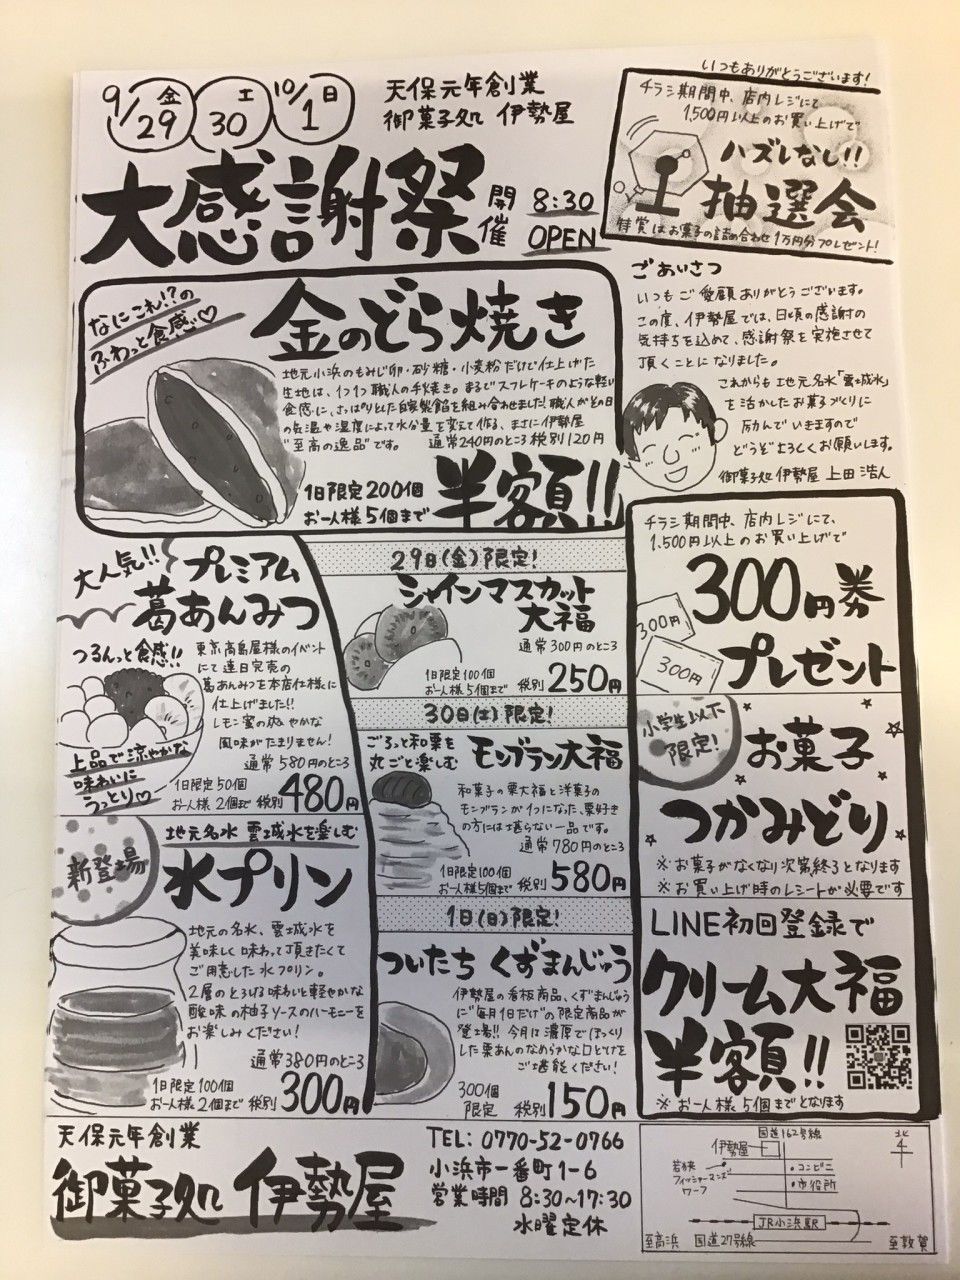 9/29金
30土
10/1日
天保元年創業
御菓子処 伊勢屋
大感謝祭
開催
8:30
OPEN
いつもありがとうございます!
チラシ期間中、店内レジにて
1,500円以上のお買い上げで
ハズレなし!!
抽選会
特賞はお菓子の詰め合わせ1万円分プレゼント!
なにこれ!?の
ふわっと食感♡
金のどら焼き
地元小浜のもみじ卵・砂糖・小麦粉だけで仕上げた
生地は、1つ1つ職人の手焼き。まるでスフレケーキのような軽い
食感に、さっぱりとした自家製餡を組み合わせました!職人がその日
の気温や湿度によって水分量を変えて作る、まさに伊勢屋
"至高の逸品"です。
通常240円のところ税別120円
1日限定200個
お一人様5個まで
半額!!
ごあいさつ
いつもご愛顧ありがとうございます。
この度、伊勢屋では、日頃の感謝の
気持ちを込めて、感謝祭を実施させて
頂くことになりました。
これからも地元名水「雲城水」
を活かしたお菓子づくりに
励んでいきますので
どうぞよろしくお願いします。
御菓子処伊勢屋 上田浩人
大人気!!
プレミアム
葛あんみつ
つるんっと食感!!
東京高島屋様のイベント
にて連日完売の
葛あんみつを本店仕様に
仕上げました!!
レモン蜜の爽やかな
風味がたまりません!
上品で涼やかな
味わいに
うっとり♡
通常580円のところ
1日限定50個
お一人様2個まで
税別480円
新登場
地元名水 雲城水を楽しむ
水プリン
地元の名水、雲城水を
美味しく味わって頂きたくて
ご用意した水プリン。
2層のとろける味わいと軽やかな
酸味の柚子ソースのハーモニーを
お楽しみください!
通常380円のところ
1日限定100個
お一人様2個まで
税別300円
29日(金)限定!
シャインマスカット
大福
通常300円のところ
1日限定100個
お一人様5個まで
税別250円
30日(土)限定!
ごろっと和栗を
丸ごと楽しむ
モンブラン大福
和菓子の栗大福と洋菓子の
モンブランが1つになった、栗好き
の方には堪らない一品です。
通常780円のところ
1日限定100個
お一人様5個まで
税別580円
1日(日)限定!
ついたちくずまんじゅう
伊勢屋の看板商品、くずまんじゅう
に"毎月1日だけ"の限定商品が
登場!!今月は濃厚でほっくり
した栗あんのなめらかな口どけを
ご堪能ください!
300個
限定
税別150円
チラシ期間中、店内レジにて、
1,500円以上のお買い上げで
300円券
プレゼント
300円
300円
小学生以下
限定!
お菓子
つかみどり
※お菓子がなくなり次第終了となります
※お買い上げ時のレシートが必要です
LINE初回登録で
クリーム大福
半額!!
※お一人様5個までとなります
天保元年創業
御菓子処 伊勢屋
TEL: 0770-52-0766
小浜市一番町1-6
営業時間 8:30~17:30
水曜定休
国道162号線
北
伊勢屋
若狭
フィッシャーマンズ
ワーフ
・コンビニ
・市役所
JR小浜駅
至高浜
国道27号線
至敦賀